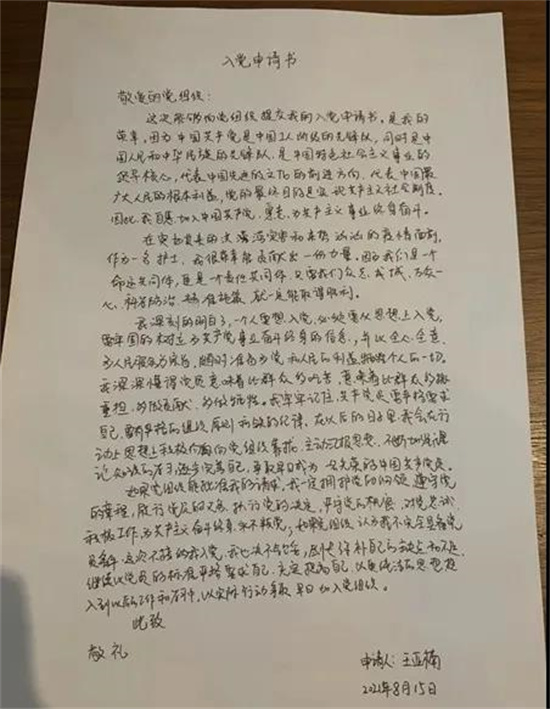 入党申请书
敬爱的党组织:
这次我能向党组织提交我的入党申请书,是我的
荣幸,因为中国共产党是中国工人阶级的先锋队,同时是中
国人民和中华民族的先锋队,是中国特色社会主义事业的
领导核心,代表中国先进的文化的前进方向,代表中国最
广大人民的根本利益,党的最终目的是实现共产主义社会制度,
因此,我自愿加入中国共产党,愿意为共产主义事业终身奋斗。
在突如其来的洪涝灾害和来势汹汹的疫情面前,
作为一名护士,我很荣幸能贡献出一份力量。因为我们是一个
命运共同体,更是一个责任共同体,只要我们众志成城,万众一
心,科学防治,精准施策,就一定能取得胜利。
我深刻的明白了,一个人要想入党,必须要从思想上入党,
要牢固的树立为共产党事业奋斗终身的信念,并以全心全意
为人民服务为宗旨,随时准备为党和人民的利益牺牲个人的一切,
我深深懂得党员意味着比群众多吃苦,意味着比群众多挑
重担,多做贡献,多做牺牲。我牢牢记住,共产党员要严格要求
自己,要有严格的组织原则和铁的纪律,在以后的日子里,我会在行
动上思想上积极的面向党组织靠拢,主动汇报思想,不断加强理
论知识的学习,逐步完善自己,争取早日成为一名光荣的中国共产党员。
如果党组织能批准我的请求,我一定拥护党的纲领,遵守党
的章程,履行党员的义务,执行党的决定,严守党的机密,对党忠诚,
积极工作,为共产主义奋斗终身,永不叛党;如果党组织认为我不完全具备党
员条件,这次不接纳我入党,我也决不气馁,
继续以党员的标准严格要求自己,充实提高自己,
入到以后工作和学习中,以实际行动争取早日加入党组织。
此致
敬礼
申请人:王亚楠
2021年8月15日